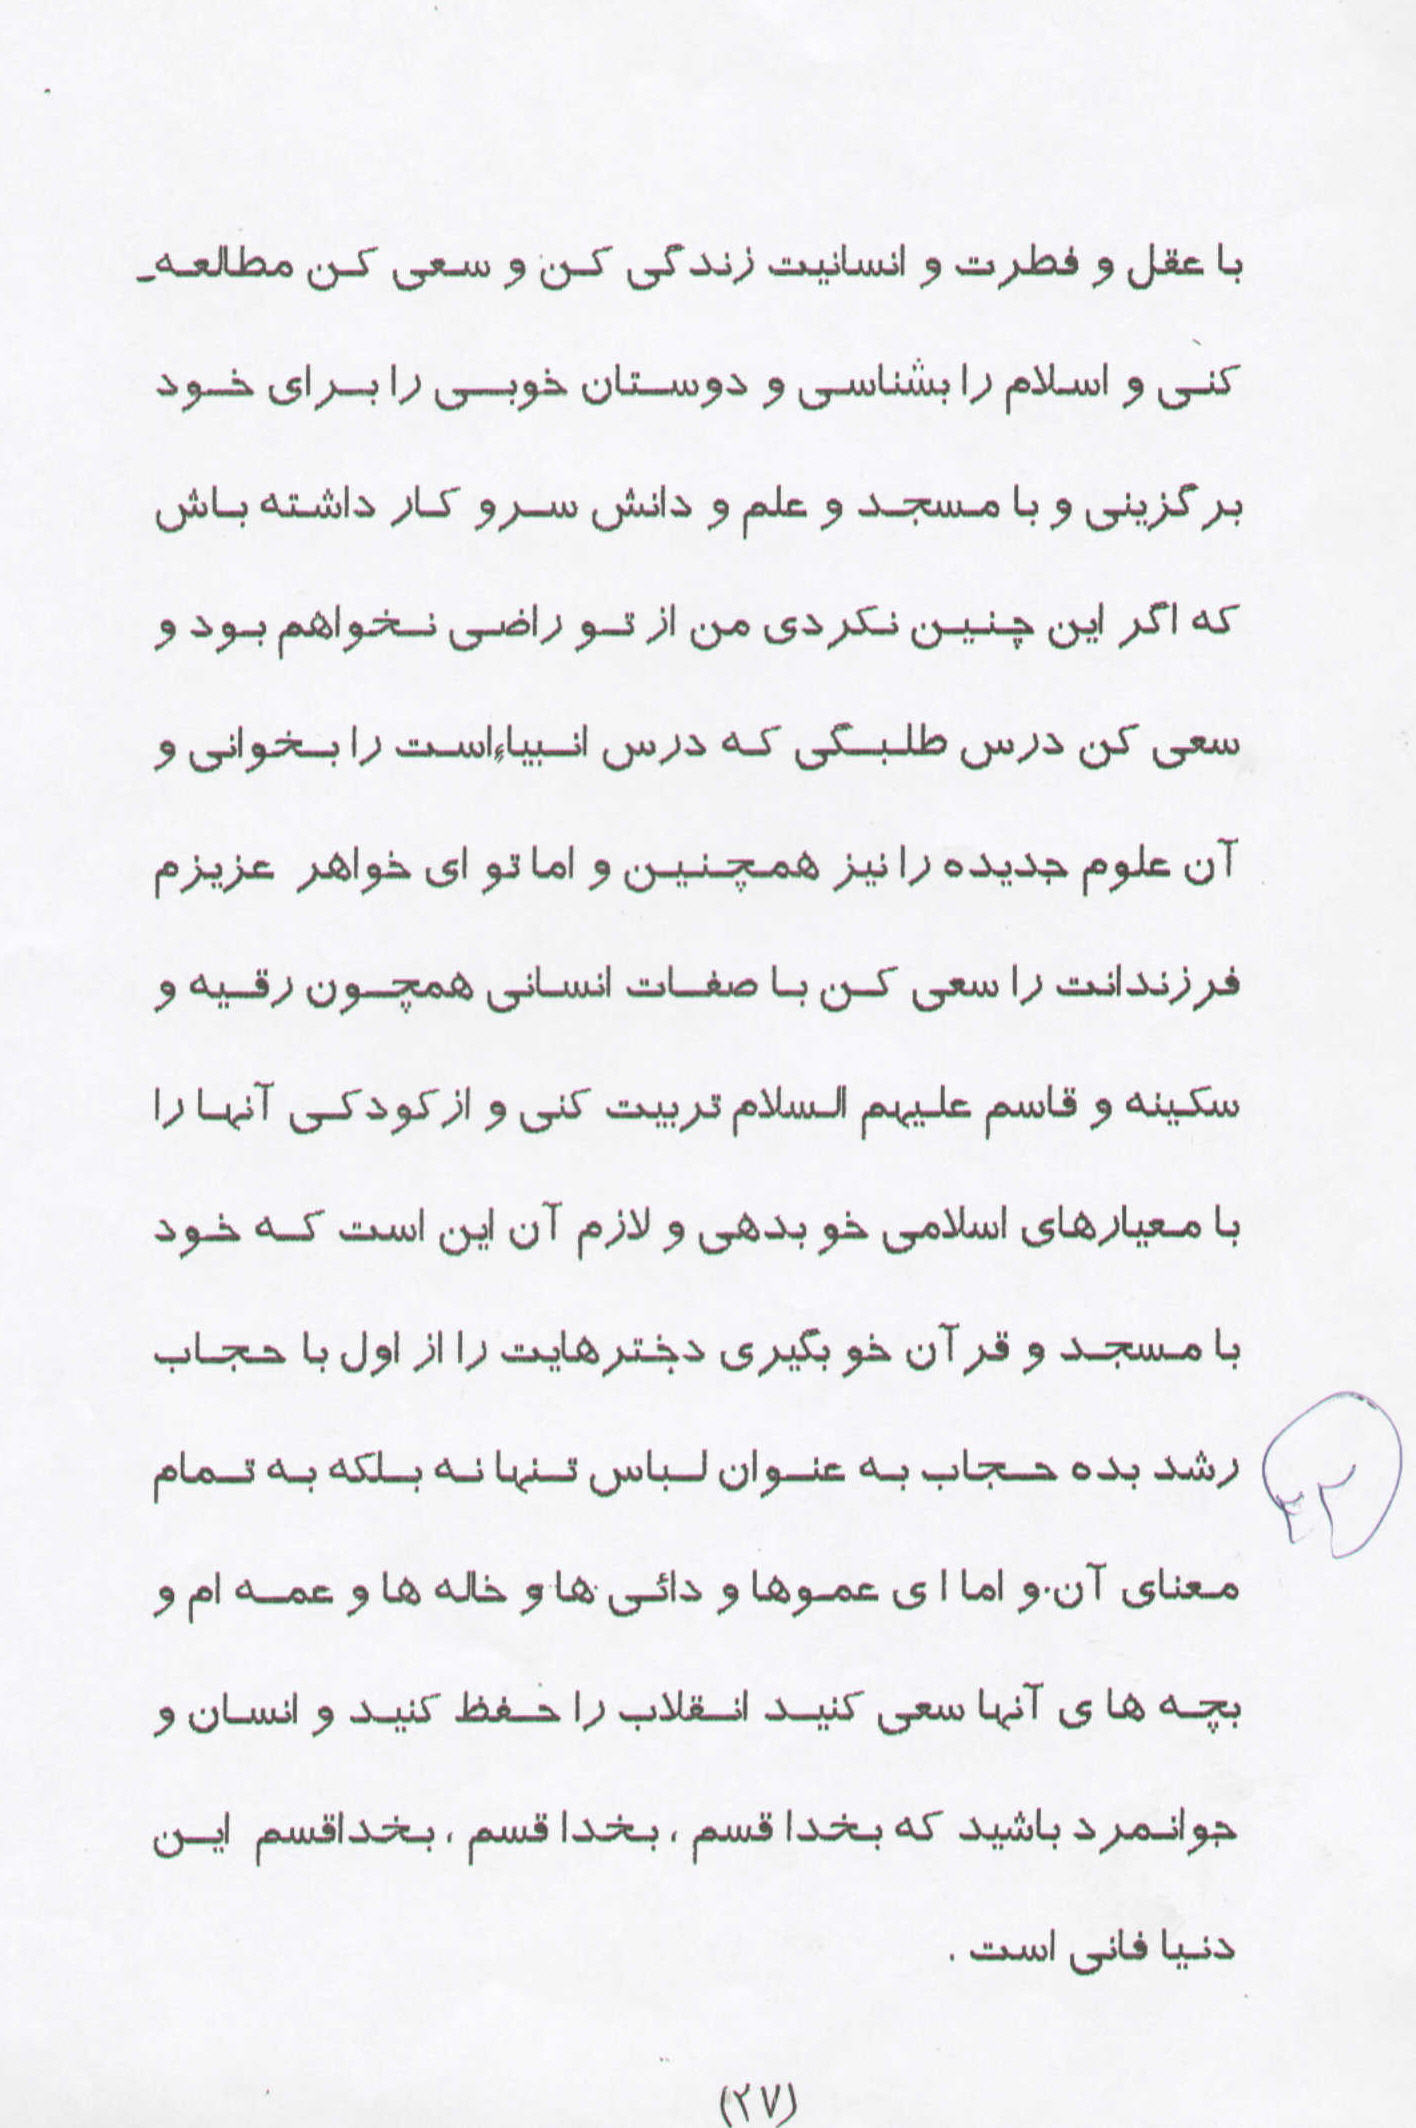 با عقل و فطرت و انسانیت زندگی کن و سعی کن مطالعه_
کنی و اسلام را بشناسی و دوستان خوبی را برای خود
برگزینی و با مسجد و علم و دانش سر و کار داشته باش
که اگر این چنین نکردی من از تو راضی نخواهم بود و
سعی کن درس طلبگی که درس انبیاء است را بخوانی و
آن علوم جدیده را نیز همچنین و اما تو ای خواهر عزیزم
فرزندانت را سعی کن با صفات انسانی همچون رقیه و
سکینه و قاسم علیهم السلام تربیت کنی و از کودکی آنها را
با معیارهای اسلامی خو بدهی و لازم آن این است که خود
با مسجد و قرآن خو بگیری دخترهایت را از اول با حجاب
رشد بده حجاب به عنوان لباس تنها نه بلکه به تمام
معنای آن. و اما ای عموها و دائی ها و خاله ها و عمه ام و
بچه های آنها سعی کنید انقلاب را حفظ کنید و انسان و
جوانمرد باشید که بخدا قسم ، بخدا قسم ، بخدا قسم این
دنیا فانی است .
(۲۷)